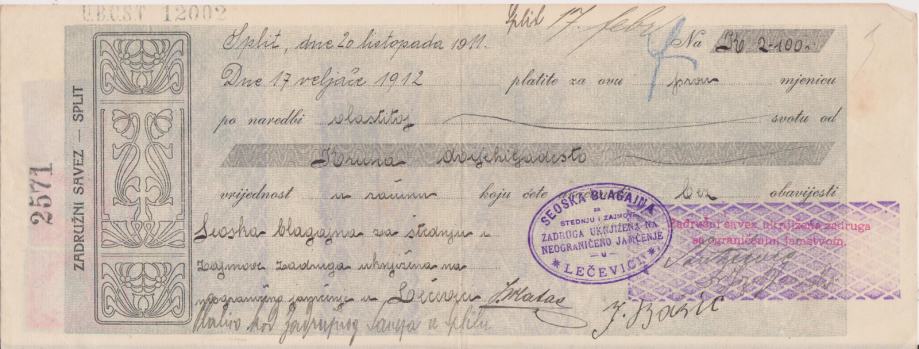 U.B.C.S.T 12002
Split 17 febr
Split, dne 20 listopada 1911. Na K 2-100.
Dne 17 veljače 1912 platite za ovu prvu mjenicu
po naredbi vlastitoj svotu od
Kruna dvijehiljadesto
vrijednost u računu koju ćete bez obavijesti
Seoska blagajna za štednju i
zajmove zadruga uknjižena na
neograničeno jamčenje u Lećevici
ZADRUŽNI SAVEZ — SPLIT
2571
SEOSKA BLAGAJNA
ZA
STEDNJU I ZAJMOVE
ZADRUGA UKNJIŽENA NA
NEOGRANIČENO JAMČENJE
— U —
LEČEVICI
Zadružni savez uknjižena zadruga
sa ograničenim jamstvom.